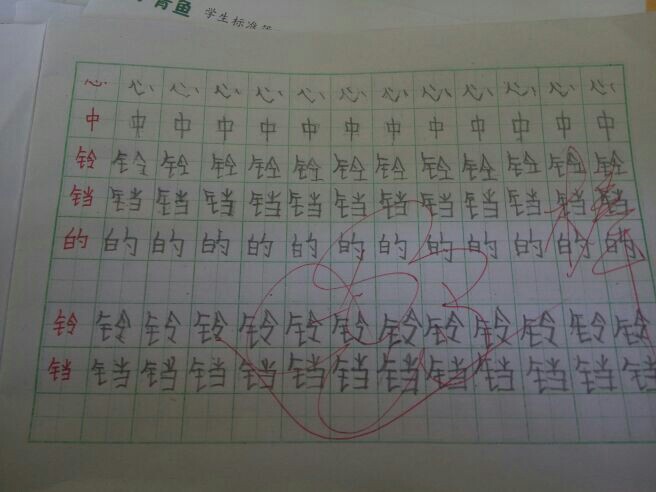 青鱼 学生标准
心心心心心心心心心心心心心
中中中中中中中中中中中中中
铃铃铃铃铃铃铃铃铃铃铃铃铃
铛铛铛铛铛铛铛铛铛铛铛铛铛
的的的的的的的的的的的的的
铃铃铃铃铃铃铃铃铃铃铃铃铃
铛铛铛铛铛铛铛铛铛铛铛铛铛